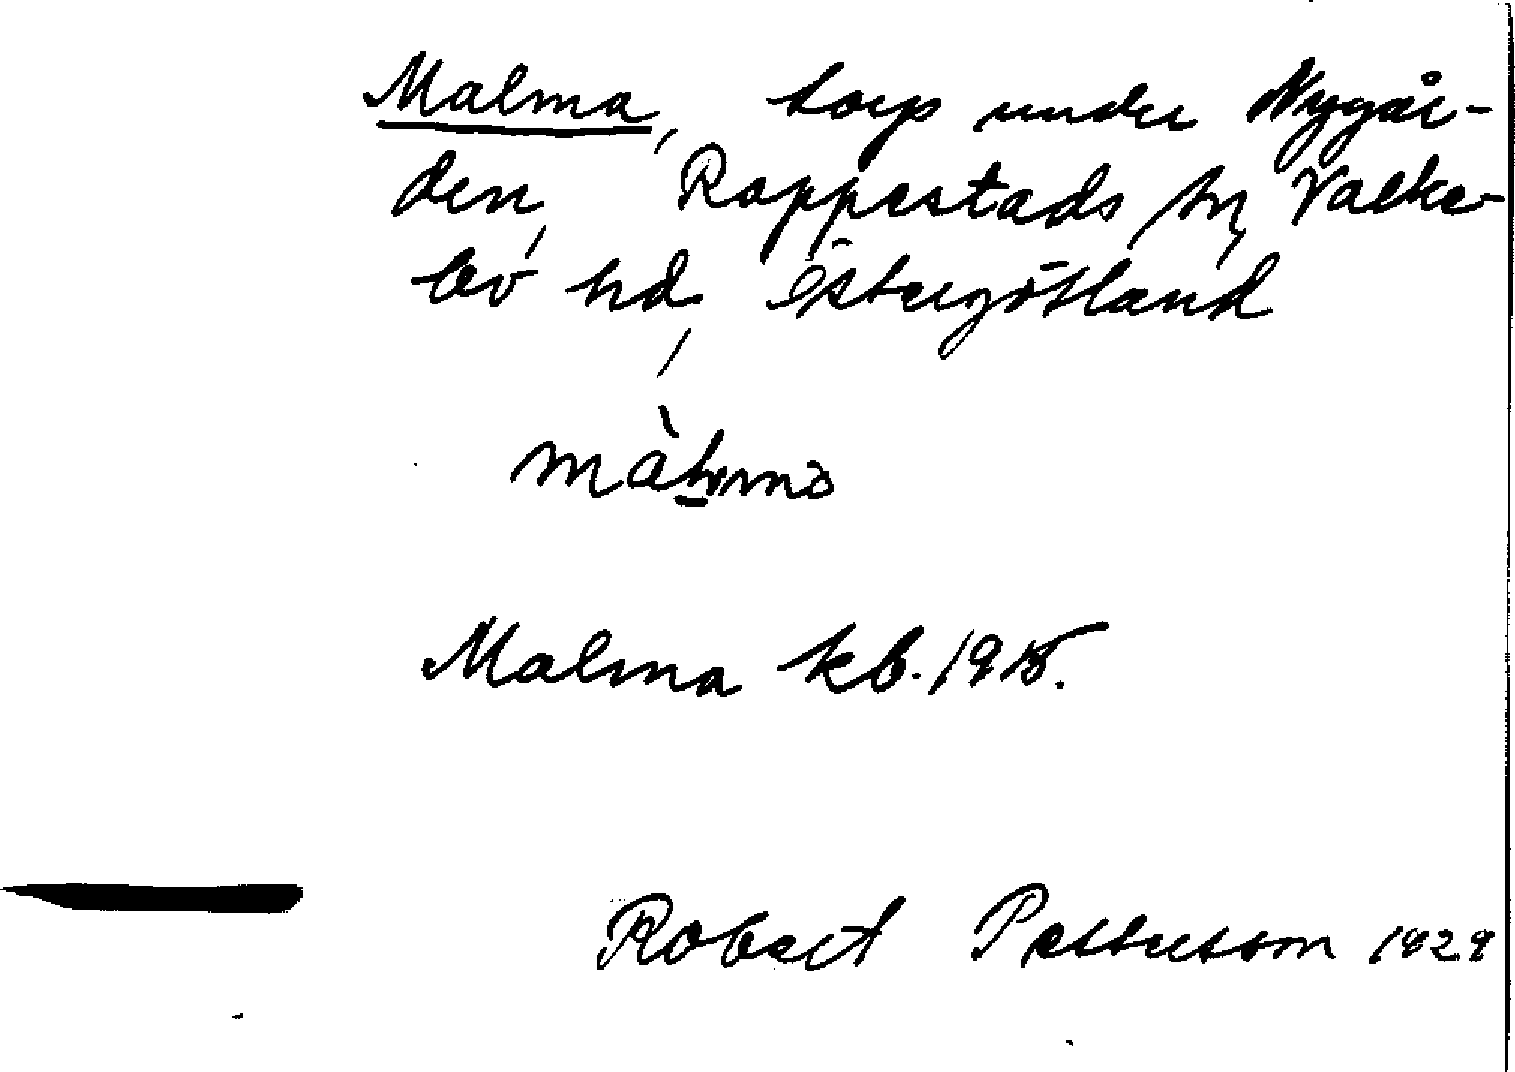 Malma, torp under Nygår-
den, Rappestads sn, Valke-
bo hd, Östergötland
Malma kb. 1915.
Robert Pettersson 1929